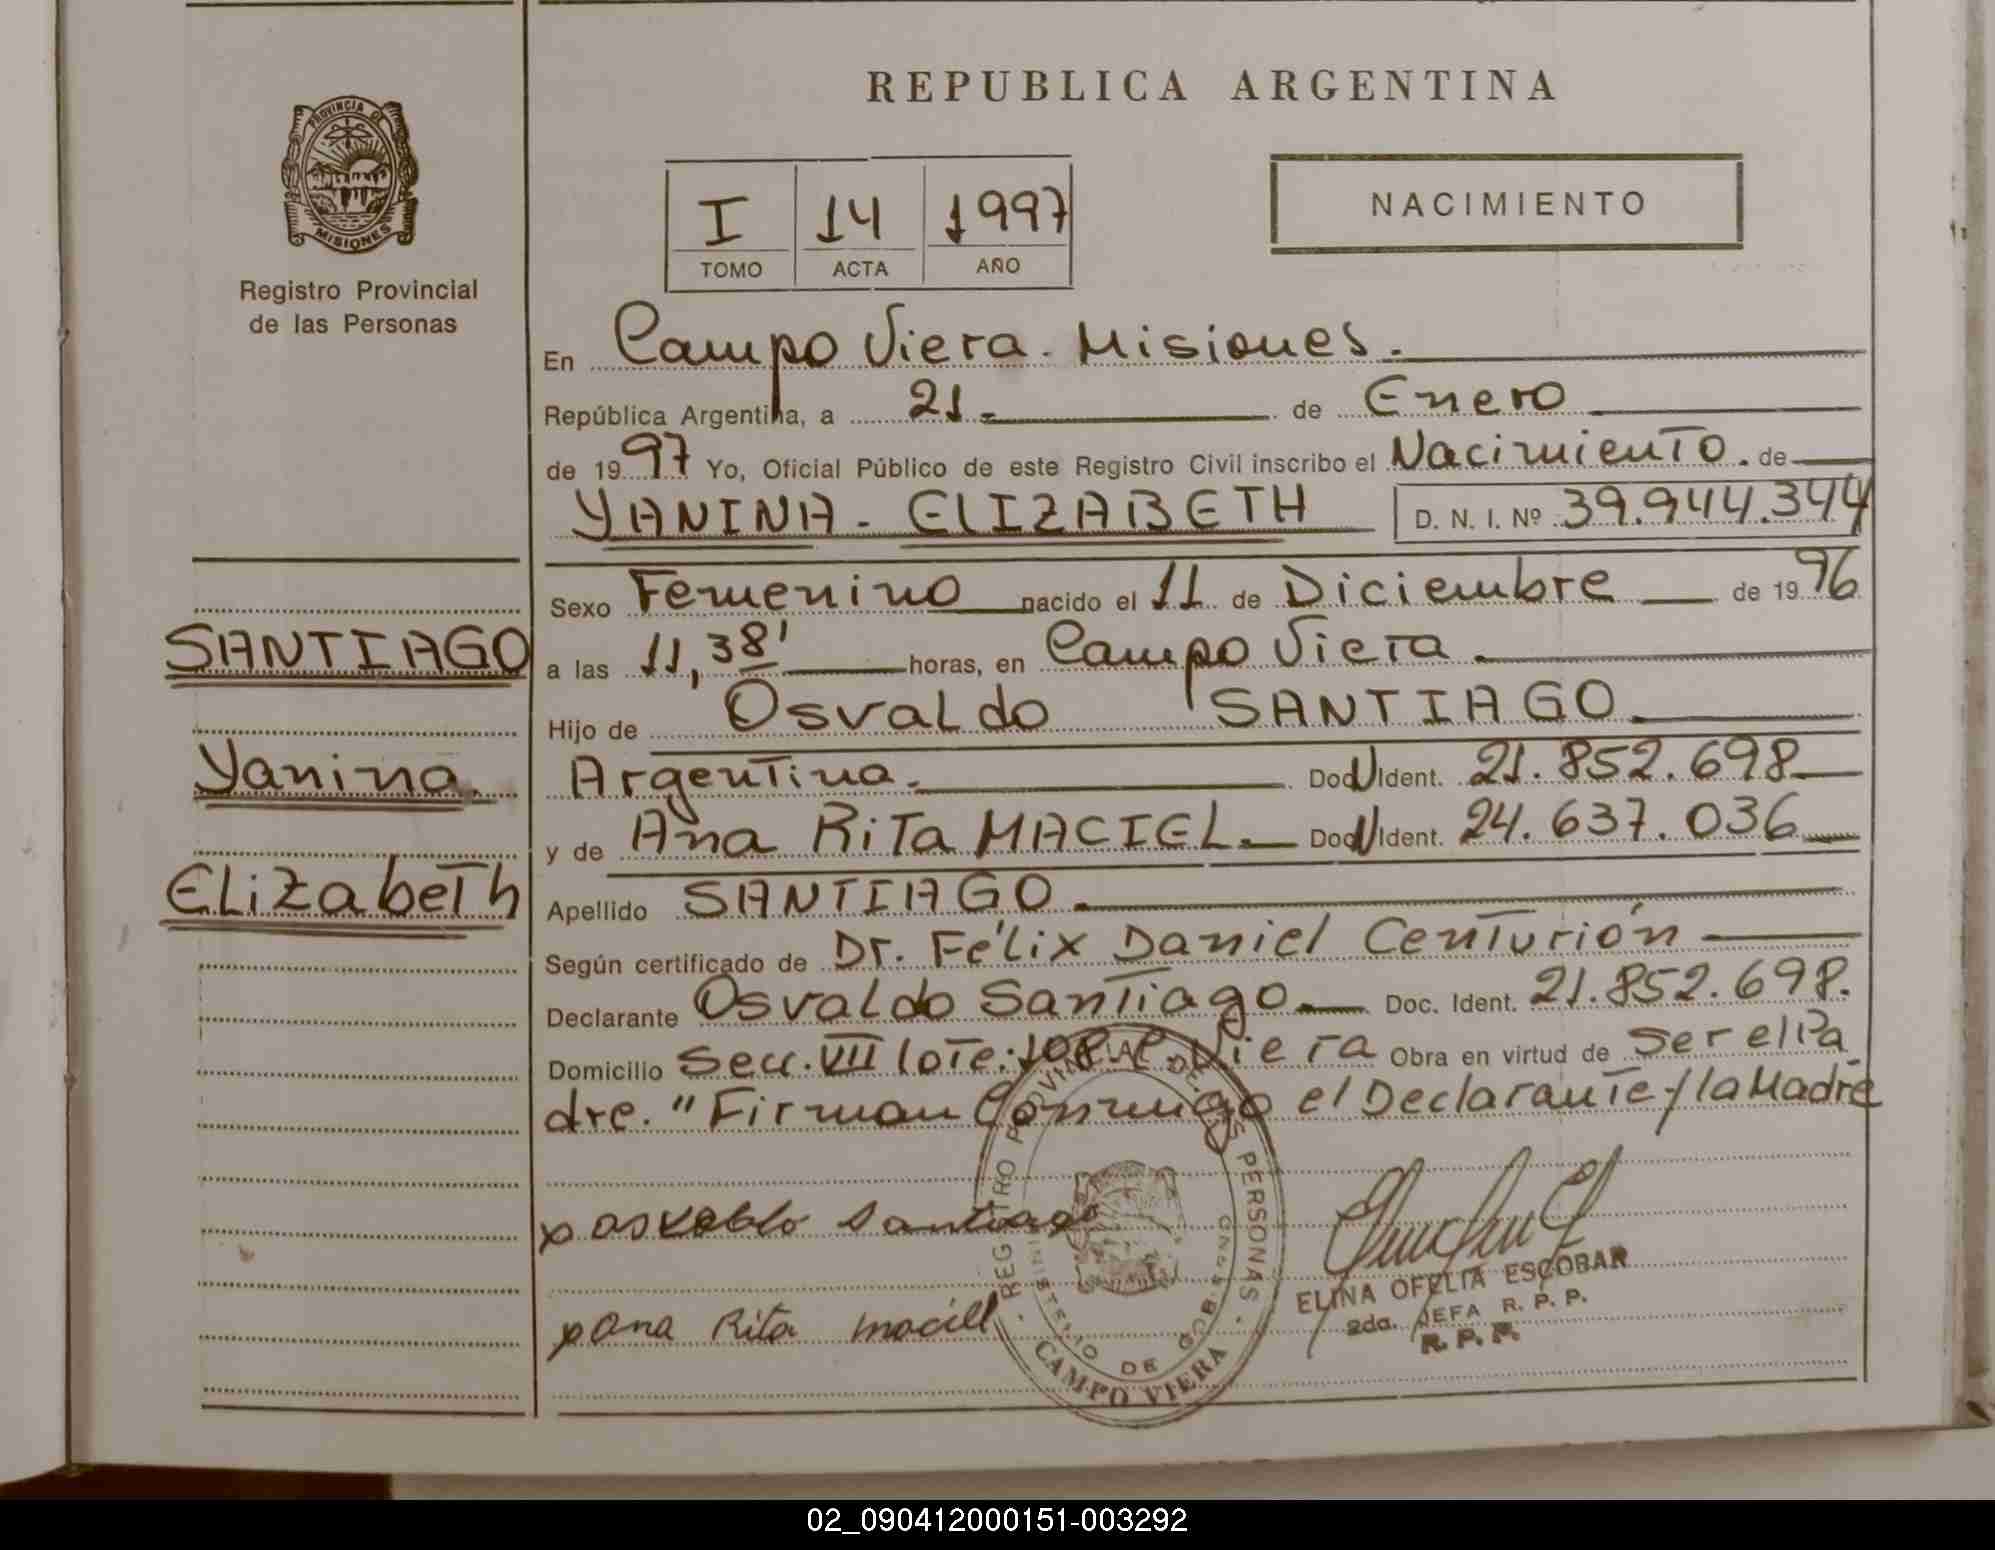 REPUBLICA ARGENTINA
PROVINCIA DE
MISIONES
Registro Provincial
de las Personas
I 14 1997
TOMO ACTA AÑO
NACIMIENTO
En Campo Viera. Misiones.
República Argentina, a 21. de Enero
de 1997 Yo, Oficial Público de este Registro Civil inscribo el Nacimiento. de
YANINA - ELIZABETH D. N. I. Nº 39.944.344
Sexo Femenino nacido el 11 de Diciembre de 1996
SANTIAGO
a las 11,38' horas, en Campo Viera.
Hijo de Osvaldo SANTIAGO
Yanina
Argentina. Doc Ident. 21.852.698
y de Ana Rita MACIEL. Doc Ident. 24.637.036
Elizabeth
Apellido SANTIAGO.
Según certificado de Dr. Félix Daniel Centurión
Declarante Osvaldo Santiago. Doc. Ident. 21.852.698.
Domicilio Secc. VII lote: 108 C. Viera Obra en virtud de Ser el Pa
dre. "Firman Conmigo el Declarante y la Madre
REGISTRO PROVINCIAL DE LAS PERSONAS
MINISTERIO DE GOBIERNO
CAMPO VIERA
Santiago
ana Rita maciel
ELINA OFELIA ESCOBAR
2da. JEFA R. P. P.
R. P. P.
02_090412000151-003292